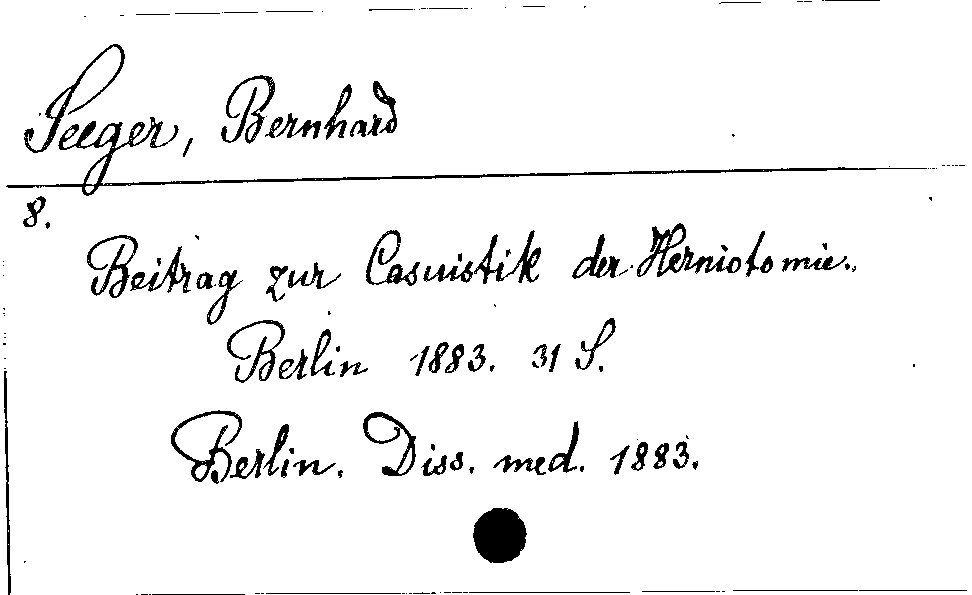 Seeger, Bernhard
8.
Beitrag zur Casuistik der Herniotomie.
Berlin 1883. 31 S.
Berlin. Diss. med. 1883.